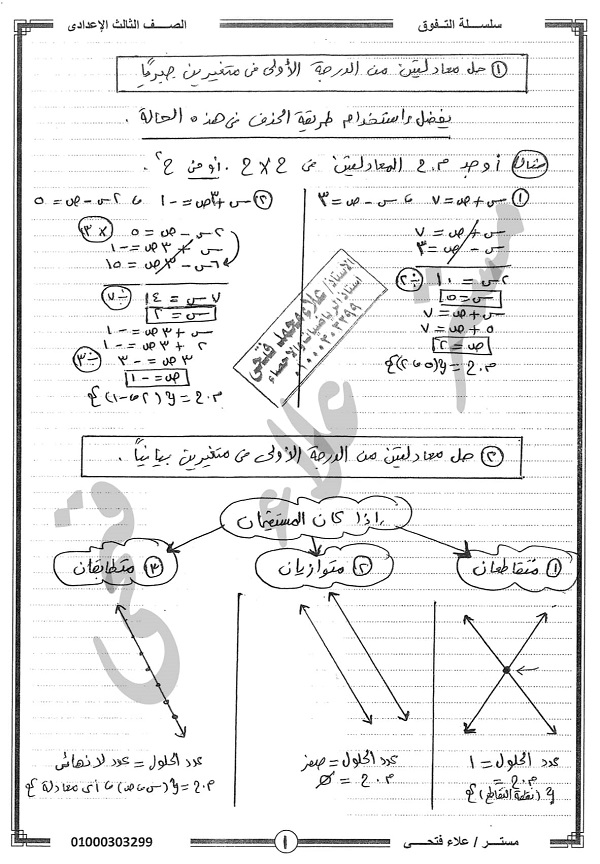 سلسلة التفوق
الصف الثالث الإعدادى
① حل معادلتين من الدرجة الأولى فى متغيرين جبريًا
يفضل استخدام طريقة الحذف فى هذه الحالة .
مثال أوجد م.ح المعادلتين فى ح × ح . أو فى ح²
① س + ص = ٧ ، س - ص = ٣
س + ص = ٧
س - ص = ٣
٢س = ١٠ ÷٢
س = ٥
س + ص = ٧
٥ + ص = ٧
ص = ٢
م.ح = {(٥ ، ٢)}
② س + ٣ص = -١ ، ٢س - ص = ٥
٢س - ص = ٥ ×٣
س + ٣ص = -١
٦س - ٣ص = ١٥
٧س = ١٤ ÷٧
س = ٢
س + ٣ص = -١
٢ + ٣ص = -١
٣ص = -٣ ÷٣
ص = -١
م.ح = {(٢ ، -١)}
الاستاذ/
علاء محمد فتحى
استاذ الرياضيات والاحصاء
٠١٠٠٠٣٠٣٢٩٩
② حل معادلتين من الدرجة الأولى فى متغيرين بيانيًا .
إذا كان المستقيمان
① متقاطعان
② متوازيان
③ متطابقان
عدد الحلول = ١
م.ح = {(نقطة التقاطع)}
عدد الحلول = صفر
م.ح = ∅
عدد الحلول = عدد لانهائى
م.ح = {(س ، ص) ، أى معادلة}
مستر / علاء فتحى
١
01000303299
مستر علاء فتحى